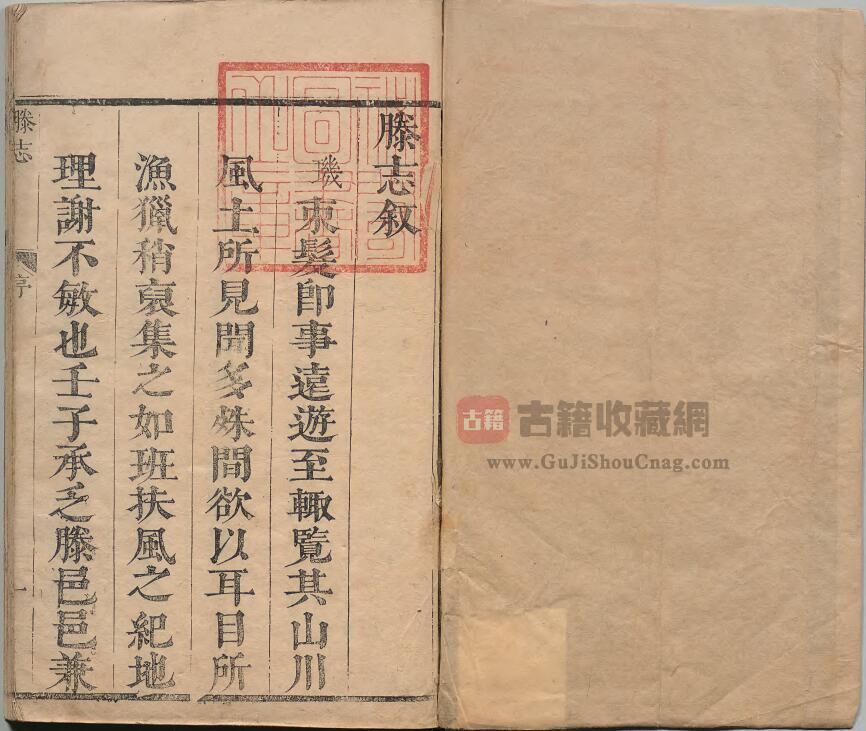 滕志叙
璣束髮即事遠遊至輙覽其山川
風土所見聞多殊間欲以耳目所
漁獵稍裒集之如班扶風之紀地
理謝不敏也壬子承乏滕邑邑兼
滕志
序
一
古籍
古籍收藏網
www.GuJiShouCnag.com